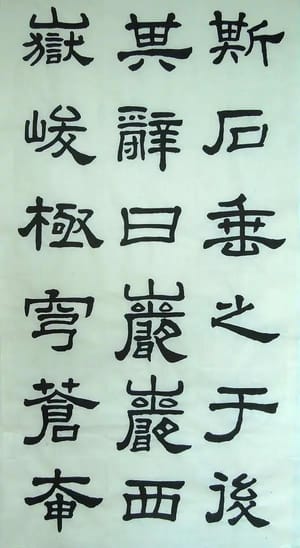 斯石垂之于後
其辭曰巖巖西
嶽峻極穹蒼奄